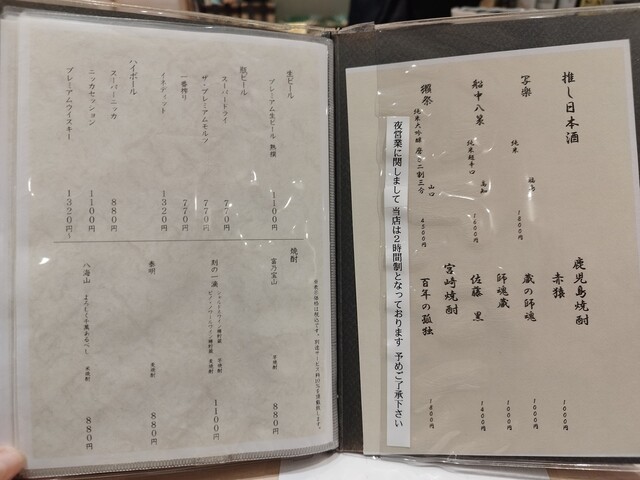 推し日本酒
写楽
純米
福島
1800円
船中八策
純米超辛口
高知
1600円
獺祭
純米大吟醸 磨き二割三分
山口
4500円
鹿児島焼酎
赤猿
1000円
蔵の師魂
1000円
師魂蔵
1000円
佐藤 黒
1400円
宮崎焼酎
百年の孤独
1800円
夜営業に関しまして 当店は2時間制となっております 予めご了承下さい
生ビール
プレミアム生ビール 熟撰
1100円
瓶ビール
スーパードライ
770円
ザ・プレミアムモルツ
770円
一番搾り
770円
1320円
ハイボール
スーパーニッカ
880円
ニッカセッション
1100円
プレミアムウイスキー
1320円～
焼酎
富乃宝山
芋焼酎
880円
刻の一滴
芋焼酎
麦焼酎
1100円
泰明
麦焼酎
880円
八海山
よろしく千萬あるべし
米焼酎
880円